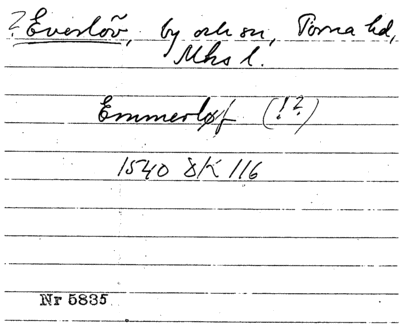 ? Everlöv, by och sn, Torna hd,
Mhs l.
Emmerløf (!?)
1540 SK 116
Nr 5835